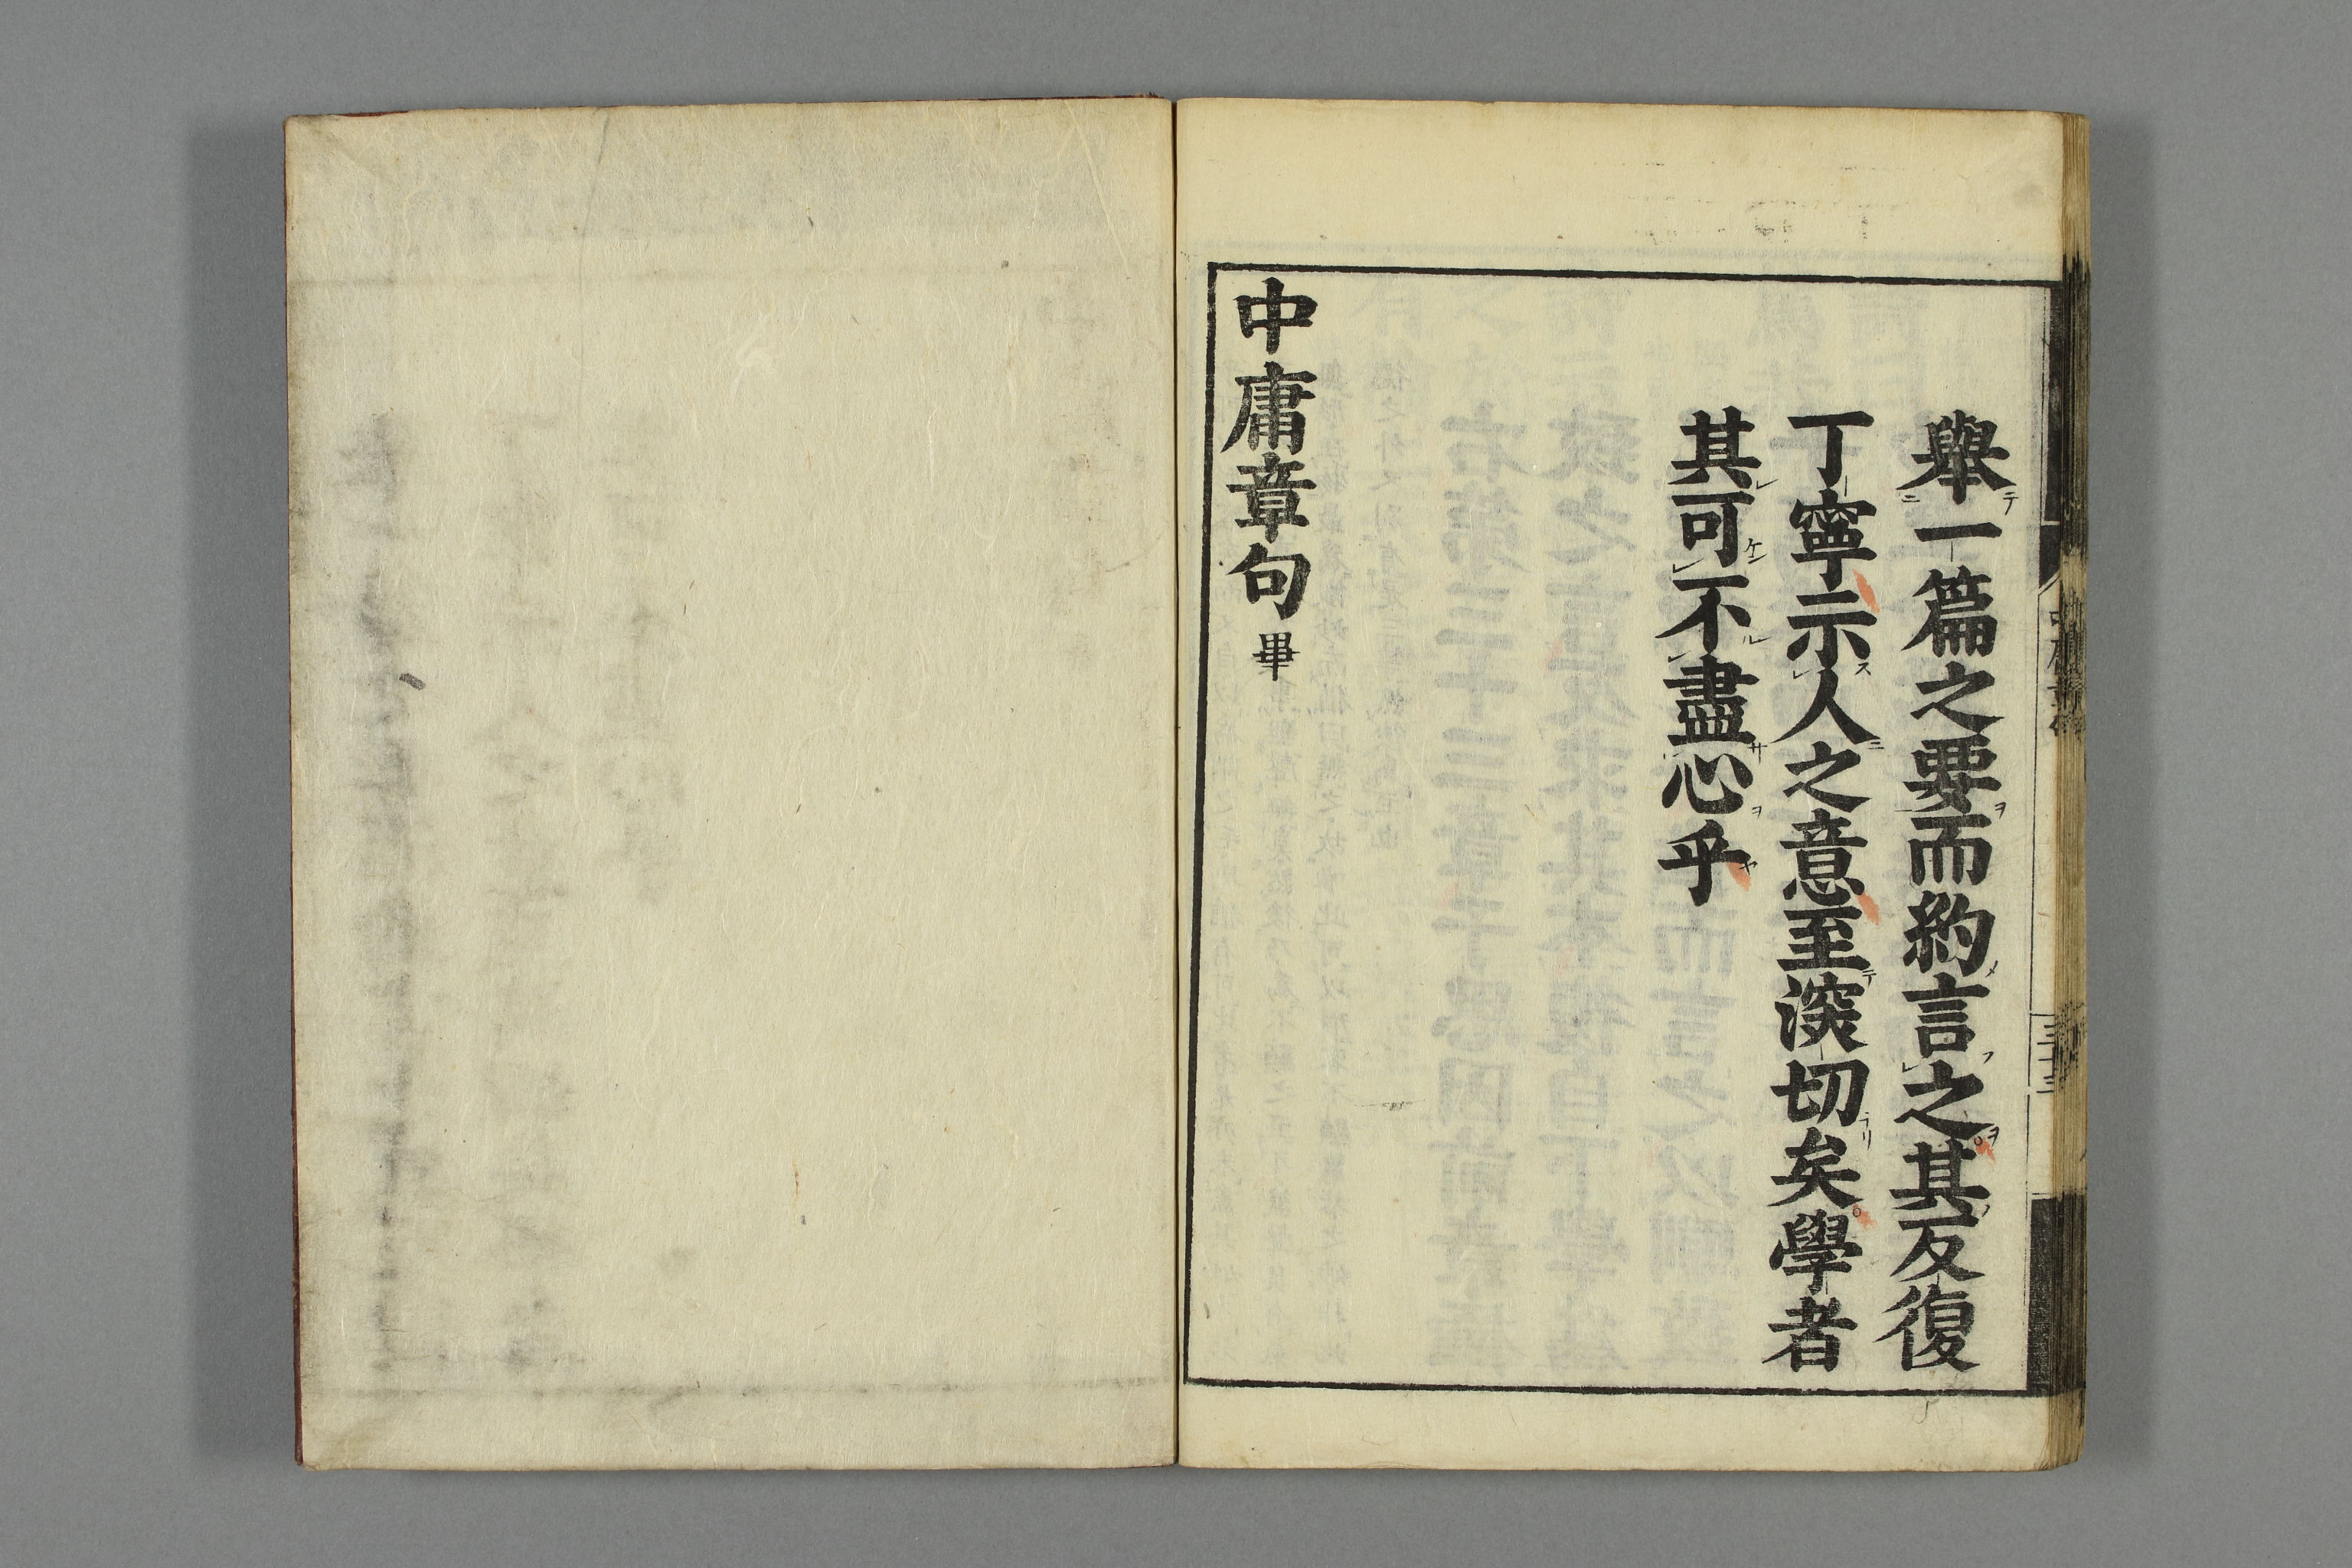 舉一篇之要而約言之其反復
丁寧示人之意至深切矣學者
其可不盡心乎
中庸章句畢